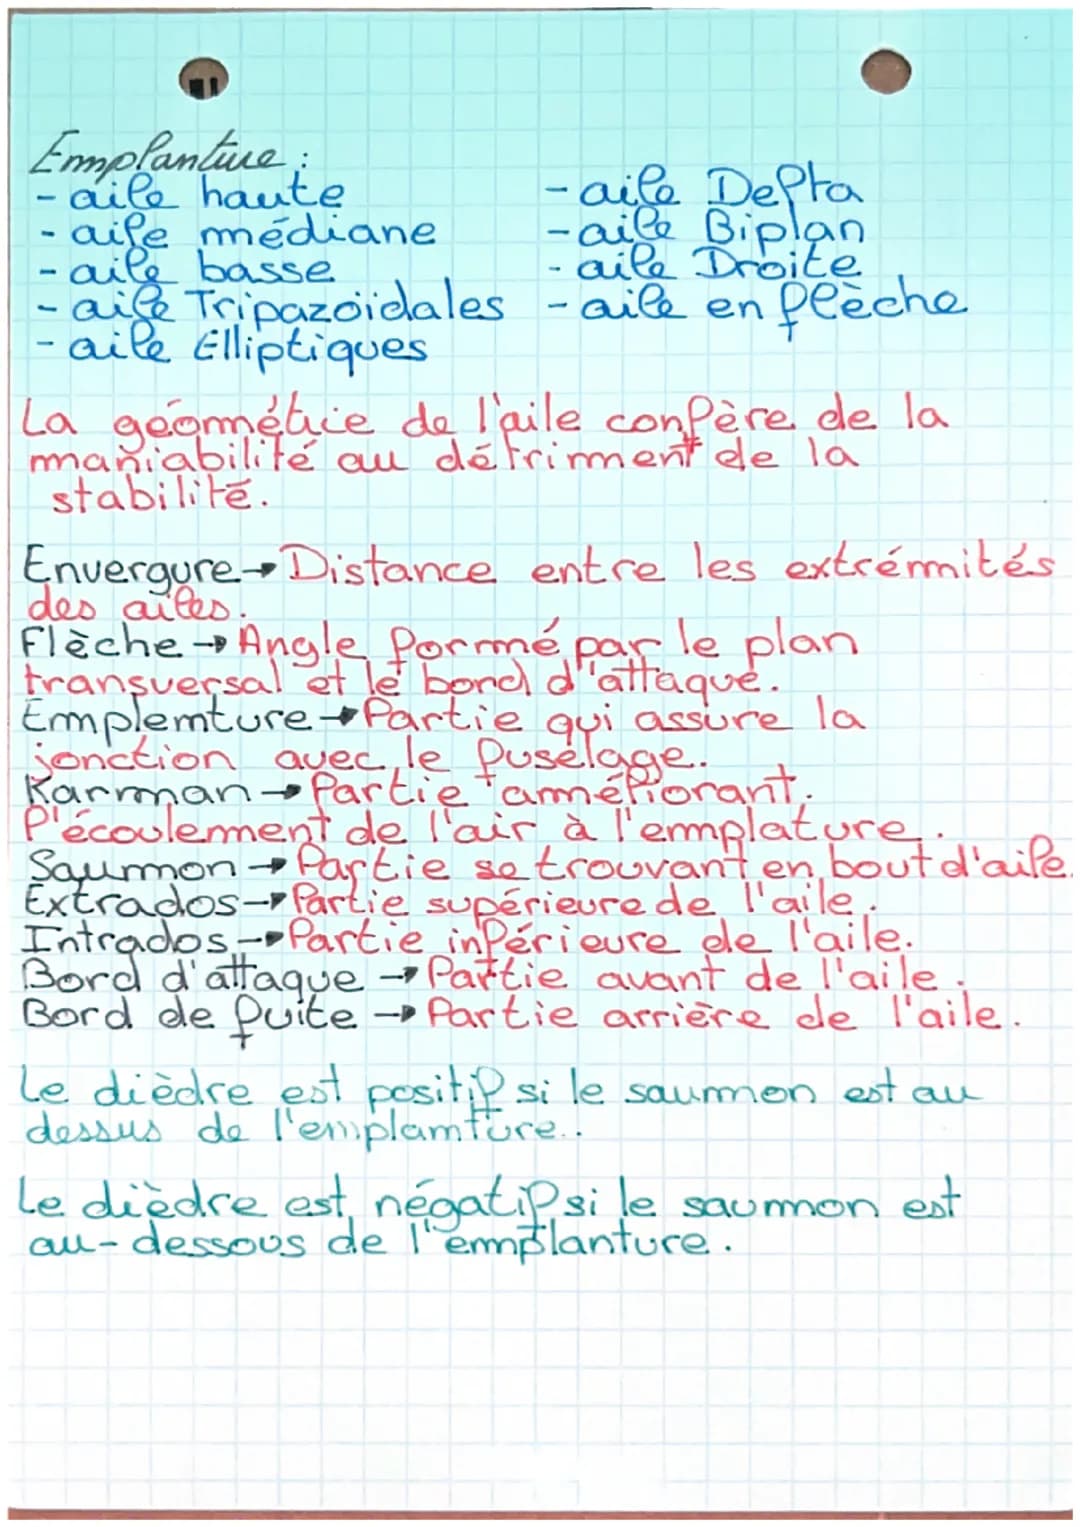 Emplanture :
- aile haute
- aile médiane
- aile basse
- aile Tripazoïdales
- aile Elliptiques
- aile Delta
- aile Biplan
- aile Droite
- aile en flèche
La géométrie de l'aile confère de la
maniabilité au détriment de la
stabilité.
Envergure → Distance entre les extrémités
des ailes.
Flèche → Angle formé par le plan
transversal et le bord d'attaque.
Emplemture → Partie qui assure la
jonction avec le fuselage.
Karman → Partie améliorant
l'écoulement de l'air à l'emplature.
Saumon → Partie se trouvant en bout d'aile.
Extrados → Partie supérieure de l'aile.
Intrados → Partie inférieure de l'aile.
Bord d'attaque → Partie avant de l'aile.
Bord de fuite → Partie arrière de l'aile.
Le dièdre est positif si le saumon est au
dessus de l'emplamture..
Le dièdre est négatif si le saumon est
au-dessous de l'emplanture.